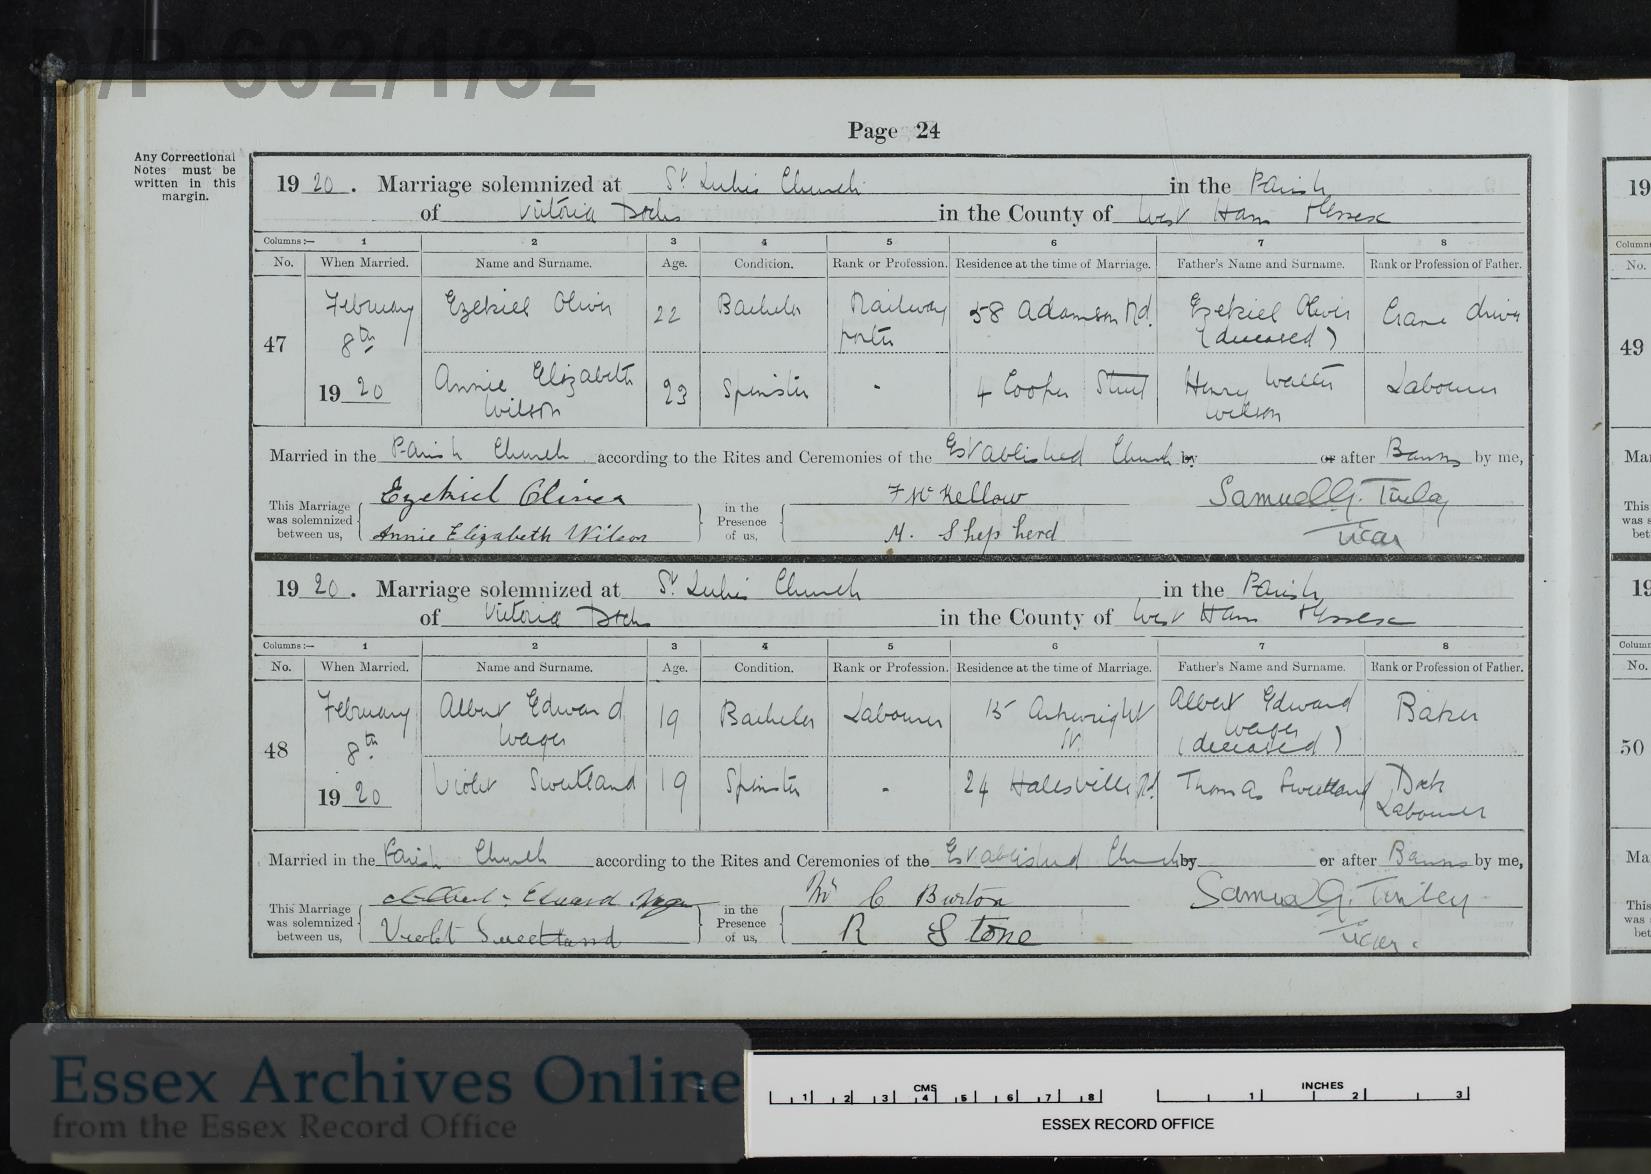 D/P 602/1/32
Page 24
Any Correctional
Notes must be
written in this
margin.
1920. Marriage solemnized at St Luke's Church in the Parish
of Victoria Docks in the County of West Ham Essex
Columns:— 1 2 3 4 5 6 7 8
No. When Married. Name and Surname. Age. Condition. Rank or Profession. Residence at the time of Marriage. Father's Name and Surname. Rank or Profession of Father.
47 February 8th 1920 Ezekiel Oliver 22 Bachelor Railway porter 58 Adamson Rd. Ezekiel Oliver (deceased) Crane driver
Annie Elizabeth Wilson 23 Spinster - 4 Cooper Street Henry Walter Wilson Labourer
Married in the Parish Church according to the Rites and Ceremonies of the Established Church by or after Banns by me,
This Marriage was solemnized between us, Ezekiel Oliver in the Presence of us, F McKellow Samuel G. Tinley
Annie Elizabeth Wilson M. Shepherd Vicar
1920. Marriage solemnized at St Luke's Church in the Parish
of Victoria Docks in the County of West Ham Essex
Columns:— 1 2 3 4 5 6 7 8
No. When Married. Name and Surname. Age. Condition. Rank or Profession. Residence at the time of Marriage. Father's Name and Surname. Rank or Profession of Father.
48 February 8th 1920 Albert Edward Wager 19 Bachelor Labourer 15 Arkwright St. Albert Edward Wager (deceased) Baker
Violet Sweetland 19 Spinster - 24 Hallsville Rd. Thomas Sweetland Dock Labourer
Married in the Parish Church according to the Rites and Ceremonies of the Established Church by or after Banns by me,
This Marriage was solemnized between us, Albert Edward Wager in the Presence of us, Mr C Burton Samuel G. Tinley
Violet Sweetland R Stone Vicar.
19
Column
No.
49
Ma
This
was s
bet
19
Column
No.
50
Ma
This
was
bet
Essex Archives Online
from the Essex Record Office
CMS 1 2 3 4 5 6 7 8
INCHES 1 2 3
ESSEX RECORD OFFICE